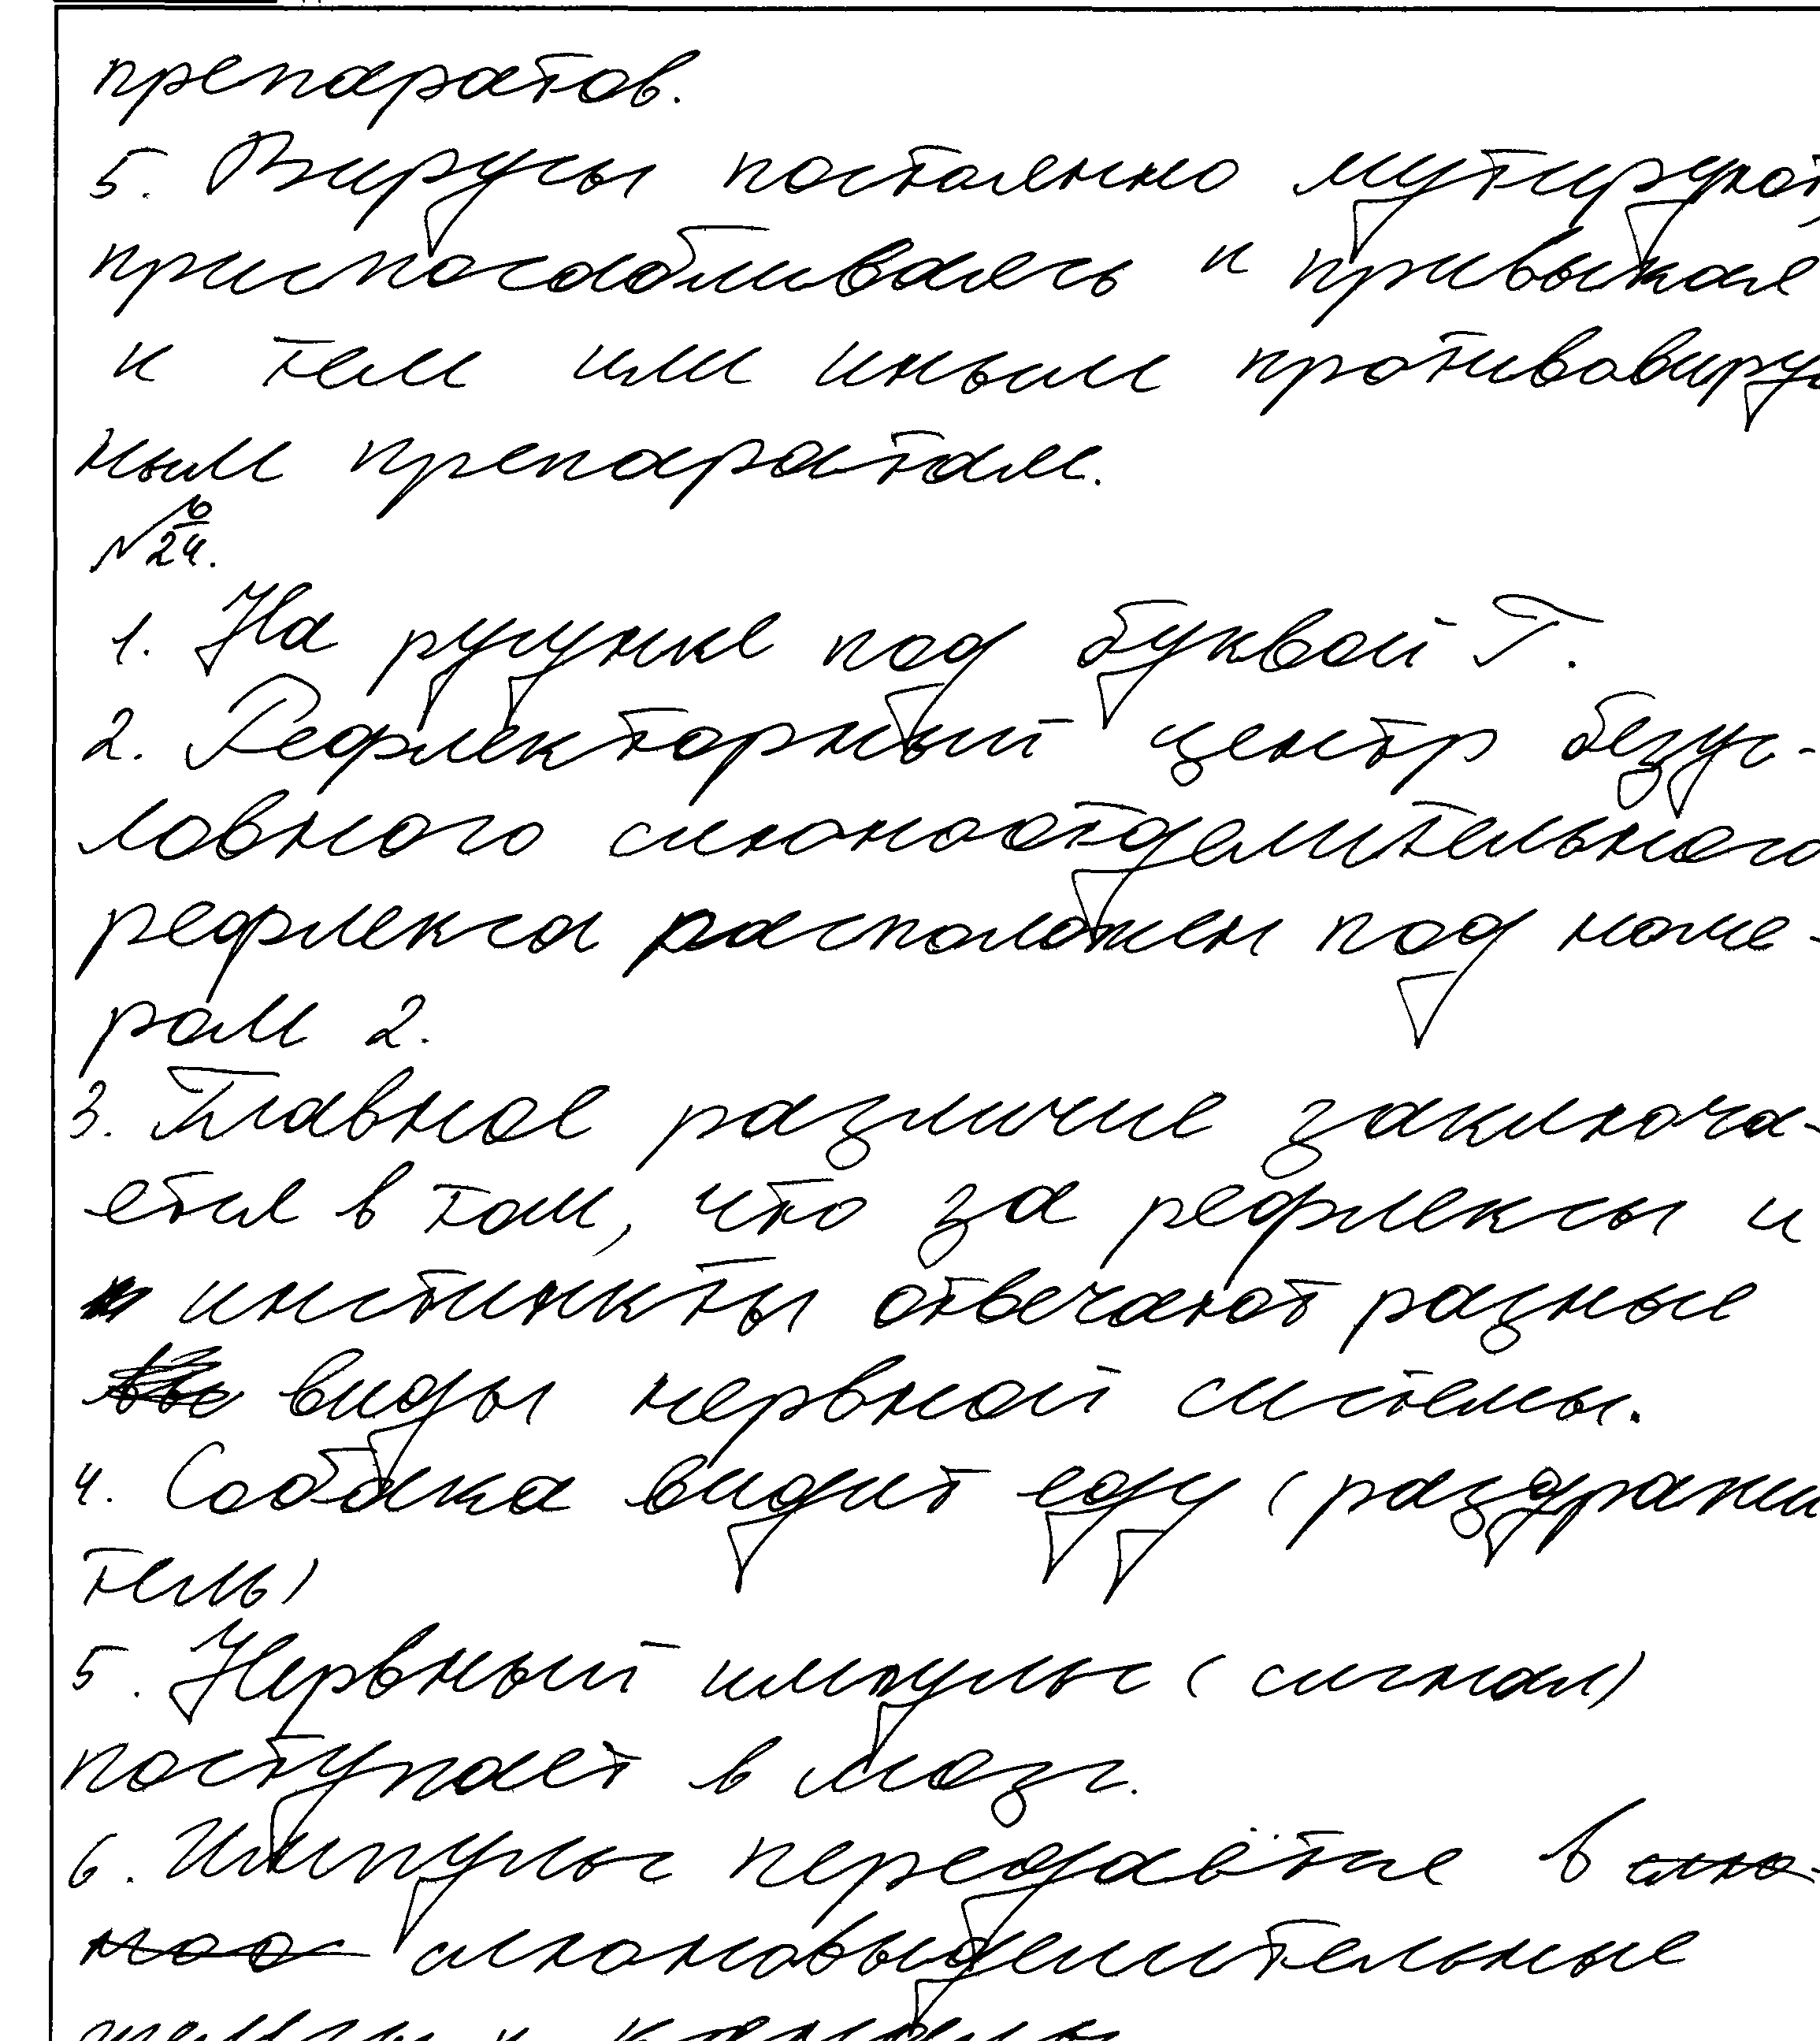 препаратов.
5. Вирусы постоянно мутируют,
приспосабливаясь и привыкая
к тем или иным противовирус
ным препаратам.
№24.
1. На русунке под буквой Г.
2. Рефлекторный центр безус-
ловного слюноотделительного
рефлекса расположен под номе-
ром 2.
3. Главное различие заключа-
ется в том, что за рефлексы и
инстинкты отвечают разные
виды нервной системы.
4. Собака видит еду (раздражи
тель)
5. Нервный импульс (сигнал)
поступает в мозг.
6. Импульс передаётся в слю-
ноо слюновыделительные